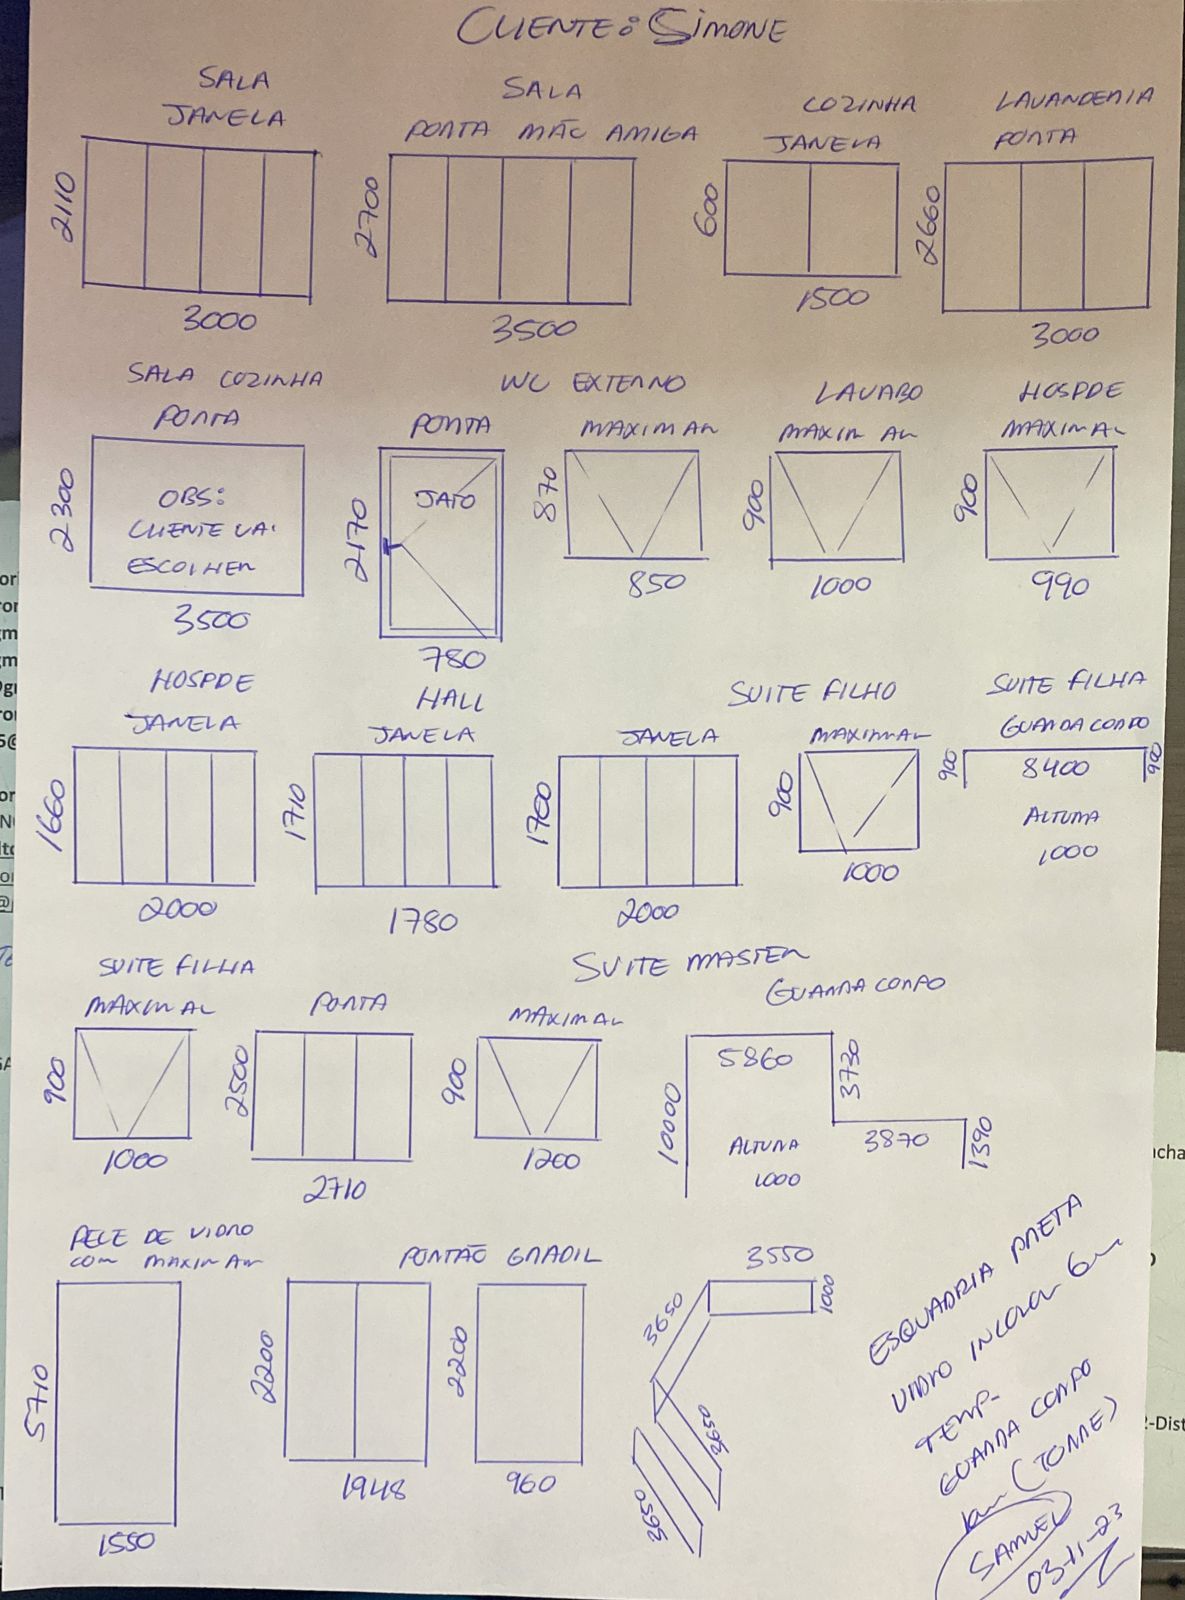 CLIENTE: SIMONE
SALA
JANELA
2110
3000
SALA
PORTA MÃO AMIGA
2700
3500
COZINHA
JANELA
600
1500
LAVANDERIA
PORTA
2660
3000
SALA COZINHA
PORTA
2300
OBS:
CLIENTE VAI
ESCOLHER
3500
WC EXTERNO
PORTA
2170
JATO
780
MAXIM AR
870
850
LAVABO
MAXIM AR
900
1000
HOSPDE
MAXIM AR
900
990
HOSPDE
JANELA
1660
2000
HALL
JANELA
1710
1780
SUITE FILHO
JANELA
1700
2000
MAXIM AR
900
1000
SUITE FILHA
GUARDA CORPO
900
8400
900
ALTURA
1000
SUITE FILHA
MAXIM AR
900
1000
PORTA
2500
2710
SUITE MASTER
MAXIM AR
900
1200
GUARDA CORPO
5860
3730
10000
3870
1390
ALTURA
1000
PELE DE VIDRO
COM MAXIM AR
5710
1550
PORTÃO GRADIL
2200
1948
2200
960
3550
1000
3650
3650
3650
ESQUADRIA PRETA
VIDRO INCOLOR 6mm
TEMP.
GUARDA CORPO
(TORRE)
SAMUEL
03-11-23